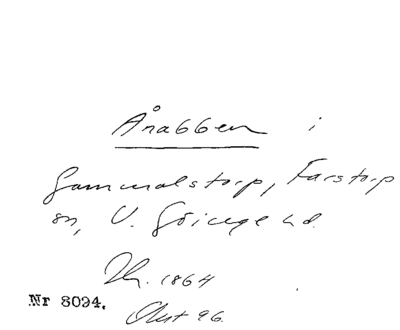 Ånabben i
Gammalstorp, Farstorp
sn, V. Göinge hd.
1864
Nr 8094.
Akt 96